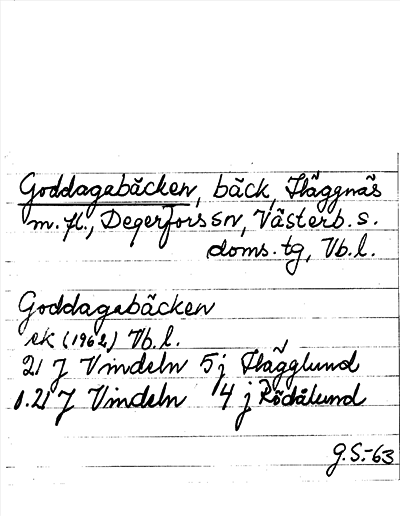 Goddagabäcken, bäck, Häggnäs
m. fl., Degerfors sn, Västerb. s.
doms. tg, Vb. l.
Goddagabäcken
ek (1962) Vb. l.
21 J Vindeln 5j Hägglund
21 J Vindeln 4 j Rödålund
G.S.-63